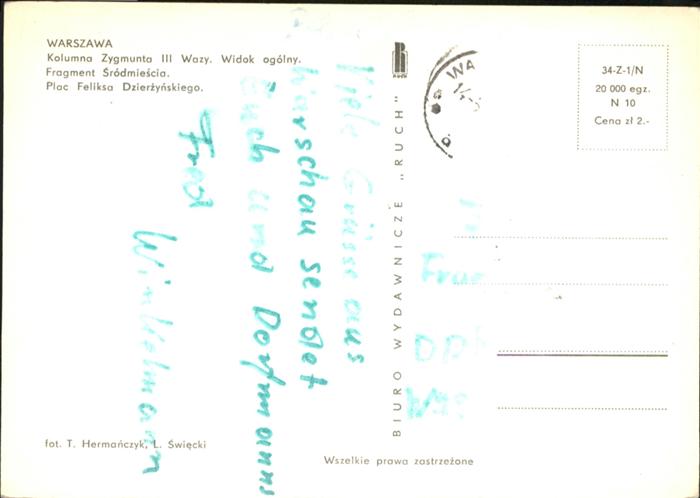 WARSZAWA
Kolumna Zygmunta III Wazy. Widok ogólny.
Fragment Śródmieścia.
Plac Feliksa Dzierżyńskiego.
Viele Grüsse aus
Warschau sendet
Euch und Dorfmanns
Fred
Winkelmann
fot. T. Hermańczyk, L. Święcki
RUCH
BIURO WYDAWNICZE „RUCH"
Wszelkie prawa zastrzeżone
WA
34-Z-1/N
20 000 egz.
N 10
Cena zł 2.-
DDR